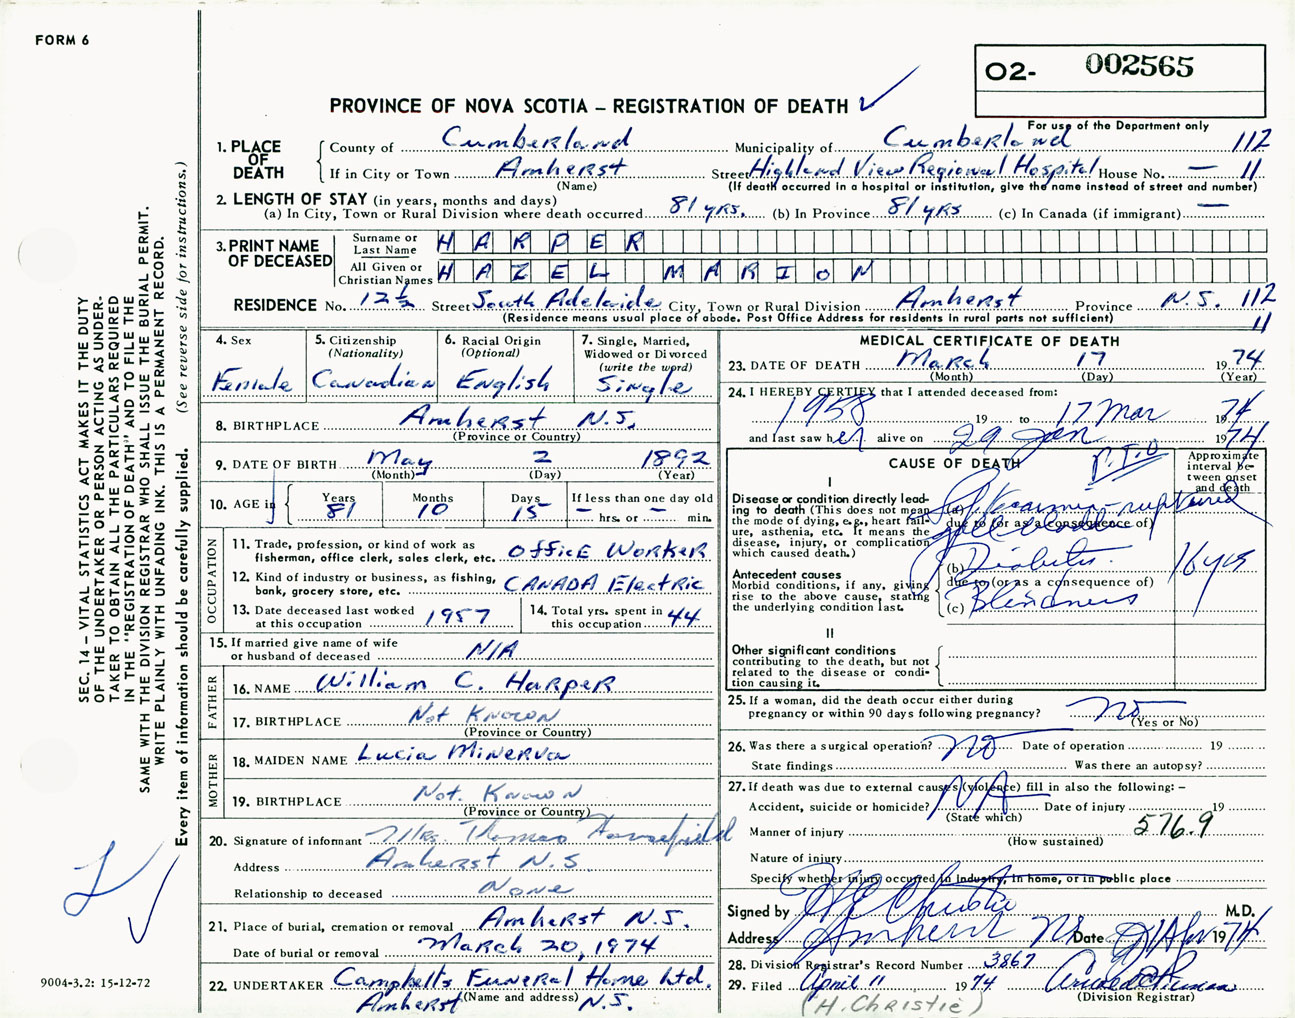 FORM 6
O2- 002565
PROVINCE OF NOVA SCOTIA – REGISTRATION OF DEATH ✓
For use of the Department only
1. PLACE OF DEATH
County of Cumberland Municipality of Cumberland 112
If in City or Town Amherst Street Highland View Regional Hospital House No. — 11
(Name) (If death occurred in a hospital or institution, give the name instead of street and number)
2. LENGTH OF STAY (in years, months and days)
(a) In City, Town or Rural Division where death occurred 81 yrs. (b) In Province 81 yrs (c) In Canada (if immigrant) —
3. PRINT NAME OF DECEASED
Surname or Last Name HARPER
All Given or Christian Names HAZEL MARION
RESIDENCE No. 12½ Street South Adelaide City, Town or Rural Division Amherst Province N.S. 112
(Residence means usual place of abode. Post Office Address for residents in rural parts not sufficient) 11
4. Sex
Female
5. Citizenship
(Nationality)
Canadian
6. Racial Origin
(Optional)
English
7. Single, Married,
Widowed or Divorced
(write the word)
Single
8. BIRTHPLACE Amherst N.S.
(Province or Country)
9. DATE OF BIRTH May 2 1892
(Month) (Day) (Year)
10. AGE in
Years Months Days If less than one day old
81 10 15 — hrs. or — min.
OCCUPATION
11. Trade, profession, or kind of work as
fisherman, office clerk, sales clerk, etc. Office Worker
12. Kind of industry or business, as fishing,
bank, grocery store, etc. CANADA Electric
13. Date deceased last worked
at this occupation 1957
14. Total yrs. spent in
this occupation 44
15. If married give name of wife
or husband of deceased N/A
FATHER
16. NAME William C. Harper
17. BIRTHPLACE Not Known
(Province or Country)
MOTHER
18. MAIDEN NAME Lucia Minerva
19. BIRTHPLACE Not Known
(Province or Country)
20. Signature of informant Mrs. Thomas
Address Amherst N.S.
Relationship to deceased None
21. Place of burial, cremation or removal Amherst N.S.
Date of burial or removal March 20, 1974
22. UNDERTAKER Campbells Funeral Home Ltd.
(Name and address)
Amherst N.S.
MEDICAL CERTIFICATE OF DEATH
23. DATE OF DEATH March 17 1974
(Month) (Day) (Year)
24. I HEREBY CERTIFY that I attended deceased from:
1958 19 to 17 Mar 1974
and last saw her alive on 29 Jan 1974
CAUSE OF DEATH P.T.O
Approximate
interval be-
tween onset
and death
I
Disease or condition directly lead-
ing to death (This does not mean
the mode of dying, e.g., heart fail-
ure, asthenia, etc. It means the
disease, injury, or complication
which caused death.)
(a) ruptured
due to (or as a consequence of)
(b) Diabetes. 16 yrs
Antecedent causes
Morbid conditions, if any, giving
rise to the above cause, stating
the underlying condition last.
due to (or as a consequence of)
(c) Blindness
II
Other significant conditions
contributing to the death, but not
related to the disease or condi-
tion causing it.
25. If a woman, did the death occur either during
pregnancy or within 90 days following pregnancy? No
(Yes or No)
26. Was there a surgical operation? No Date of operation 19
State findings Was there an autopsy?
27. If death was due to external causes (violence) fill in also the following: –
Accident, suicide or homicide? NA Date of injury 19
(State which)
Manner of injury 576.9
(How sustained)
Nature of injury
Specify whether injury occurred in industry, in home, or in public place
Signed by H Christie M.D.
Address Amherst NS Date 1 Apr 1974
28. Division Registrar's Record Number 3867
29. Filed April 11 1974
(Division Registrar)
(H. Christie)
SEC. 14 – VITAL STATISTICS ACT MAKES IT THE DUTY
OF THE UNDERTAKER OR PERSON ACTING AS UNDER-
TAKER TO OBTAIN ALL THE PARTICULARS REQUIRED
IN THE "REGISTRATION OF DEATH" AND TO FILE THE
SAME WITH THE DIVISION REGISTRAR WHO SHALL ISSUE THE BURIAL PERMIT.
WRITE PLAINLY WITH UNFADING INK. THIS IS A PERMANENT RECORD.
Every item of information should be carefully supplied. (See reverse side for instructions.)
9004-3.2: 15-12-72